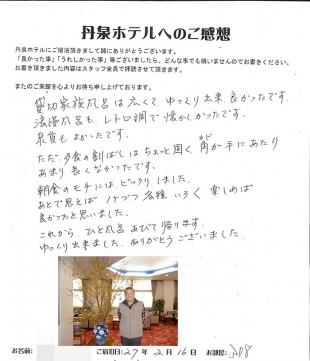 丹泉ホテルへのご感想
丹泉ホテルにご宿泊頂きまして誠にありがとうございます。
「良かった事」「うれしかった事」等ございましたら、どんな事でも構いませんのでお書きください。
お書き頂きました内容はスタッフ全員で拝読させて頂きます。
またのご来館を心よりお待ち申し上げております。
貸切家族風呂は広くて、ゆっくり出来、良かったです。
浪漫風呂も、レトロ調で懐かしかったです。
泉質もよかったです。
ただ、夕食の割ばしはちょっと固く、角が手にあたり
カド
あまり良くなかったです。
朝食のモチにはビックリしました。
あとで思えば1ケづつ各種いろいろ楽しめば
良かったと思いました。
これから ひと風呂あびて帰ります。
ゆっくり出来ました。ありがとうございました。
お名前:
ご宿泊日:27年 2月 16日 お部屋: